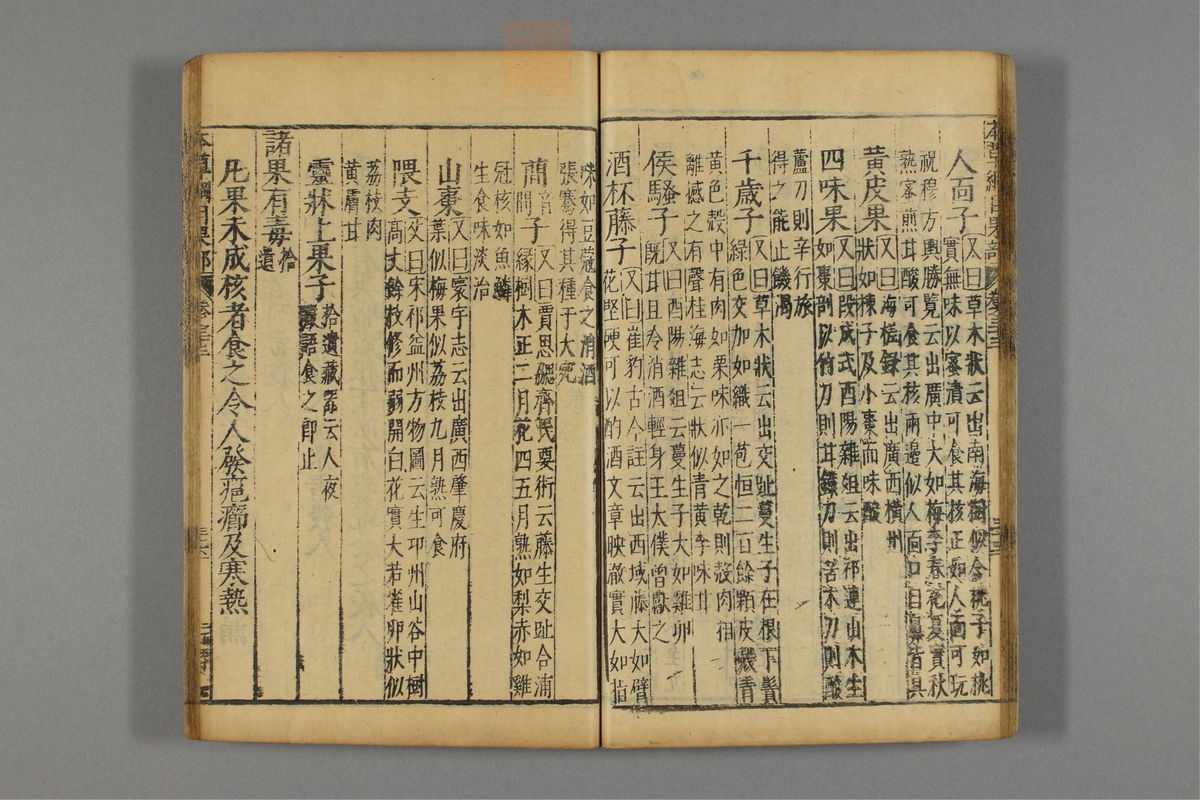 本草綱目果部 卷三十三
人面子 又曰草木狀云出南海樹似含桃子如桃
實無味以蜜漬可食其核正如人面可玩
祝穆方輿勝覽云出廣中大如梅李春花夏實秋
熟蜜煎甘酸可食其核兩邊似人面口目鼻皆具
黃皮果 又曰海槎錄云出廣西橫州
狀如楝子及小棗而味酸
四味果 又曰段成式酉陽雜俎云出祁連山木生
如棗剖以竹刀則甘鐵刀則苦木刀則酸
蘆刀則辛行旅
得之能止饑渴
千歲子 又曰草木狀云出交趾蔓生子在根下鬚
綠色交加如織一苞恒二百餘顆皮殼青
黃色殼中有肉如栗味亦如之乾則殼肉相
離撼之有聲桂海志云狀似青黃李味甘
侯騷子 又曰酉陽雜俎云蔓生子大如雞卵
既甘且冷消酒輕身王太僕曾獻之
酒杯藤子 又曰崔豹古今註云出西域藤大如臂
花堅硬可以酌酒文章映澈實大如指
味如豆蔻食之消酒
張騫得其種于大宛
䕞音間子 又曰賈思勰齊民要術云藤生交趾合浦
緣樹木正二月花四五月熟如梨赤如雞
冠核如魚鱗
生食味淡治
山棗 又曰寰宇志云出廣西肇慶府
葉似梅果似荔枝九月熟可食
隈支 又曰宋祁益州方物圖云生邛州山谷中樹
高丈餘枝修而弱開白花實大若雀卵狀似
荔枝肉
黃膚甘
靈牀上果子 拾遺藏器云人夜
讝語食之即止
諸果有毒 拾遺
凡果未成核者食之令人發瘡癤及寒熱
本草綱目果部 卷三十三